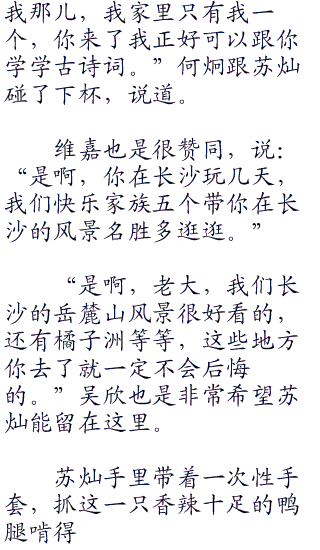 我那儿，我家里只有我一
个，你来了我正好可以跟你
学学古诗词。”何炯跟苏灿
碰了下杯，说道。
维嘉也是很赞同，说：
“是啊，你在长沙玩几天，
我们快乐家族五个带你在长
沙的风景名胜多逛逛。”
“是啊，老大，我们长
沙的岳麓山风景很好看的，
还有橘子洲等等，这些地方
你去了就一定不会后悔
的。”吴欣也是非常希望苏
灿能留在这里。
苏灿手里带着一次性手
套，抓这一只香辣十足的鸭
腿啃得